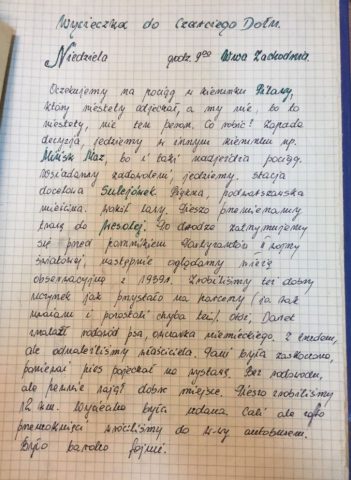 Wycieczka do Czarciego Dołu.
Niedziela godz. 9⁰⁰ W-wa Zachodnia
Oczekujemy na pociąg w kierunku Pilawy,
który niestety odjechał, a my nie, bo to
niestety, nie ten peron. Co robić? Zapada
decyzja, jedziemy w innym kierunku np.
Mińsk Maz, bo i taki nadjeżdża pociąg.
Wsiadamy zadowoleni, jedziemy. Stacja
docelowa Sulejówek. Piękna, podwarszawska
mieścina. Wokół lasy. Pieszo przemierzamy
trasę do Wesołej. Po drodze zatrzymujemy
się przed pomnikiem Partyzantów II wojny
światowej, następnie oglądamy wieżę
obserwacyjną z 1939r. Zrobiliśmy też dobry
uczynek jak przystało na harcerzy (za tak
uważani i poniekąd chyba też). Otóż, Danek
znalazł rodowód psa, owczarka niemieckiego. Z trudem,
ale odnaleźliśmy właściciela. Pani była zaskoczona,
ponieważ pies pojechał na wystawę. Bez rodowodu,
ale pewnie zajął dobre miejsce. Pieszo zrobiliśmy
12 km. Wycieczka była udana. Cali ale
przemoknięci wróciliśmy do W-wy autobusem.
Było bardzo fajnie.